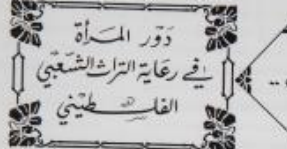 دَوْر المَرأة
في رعَاية التراث الشعَبي
الفلسطيني